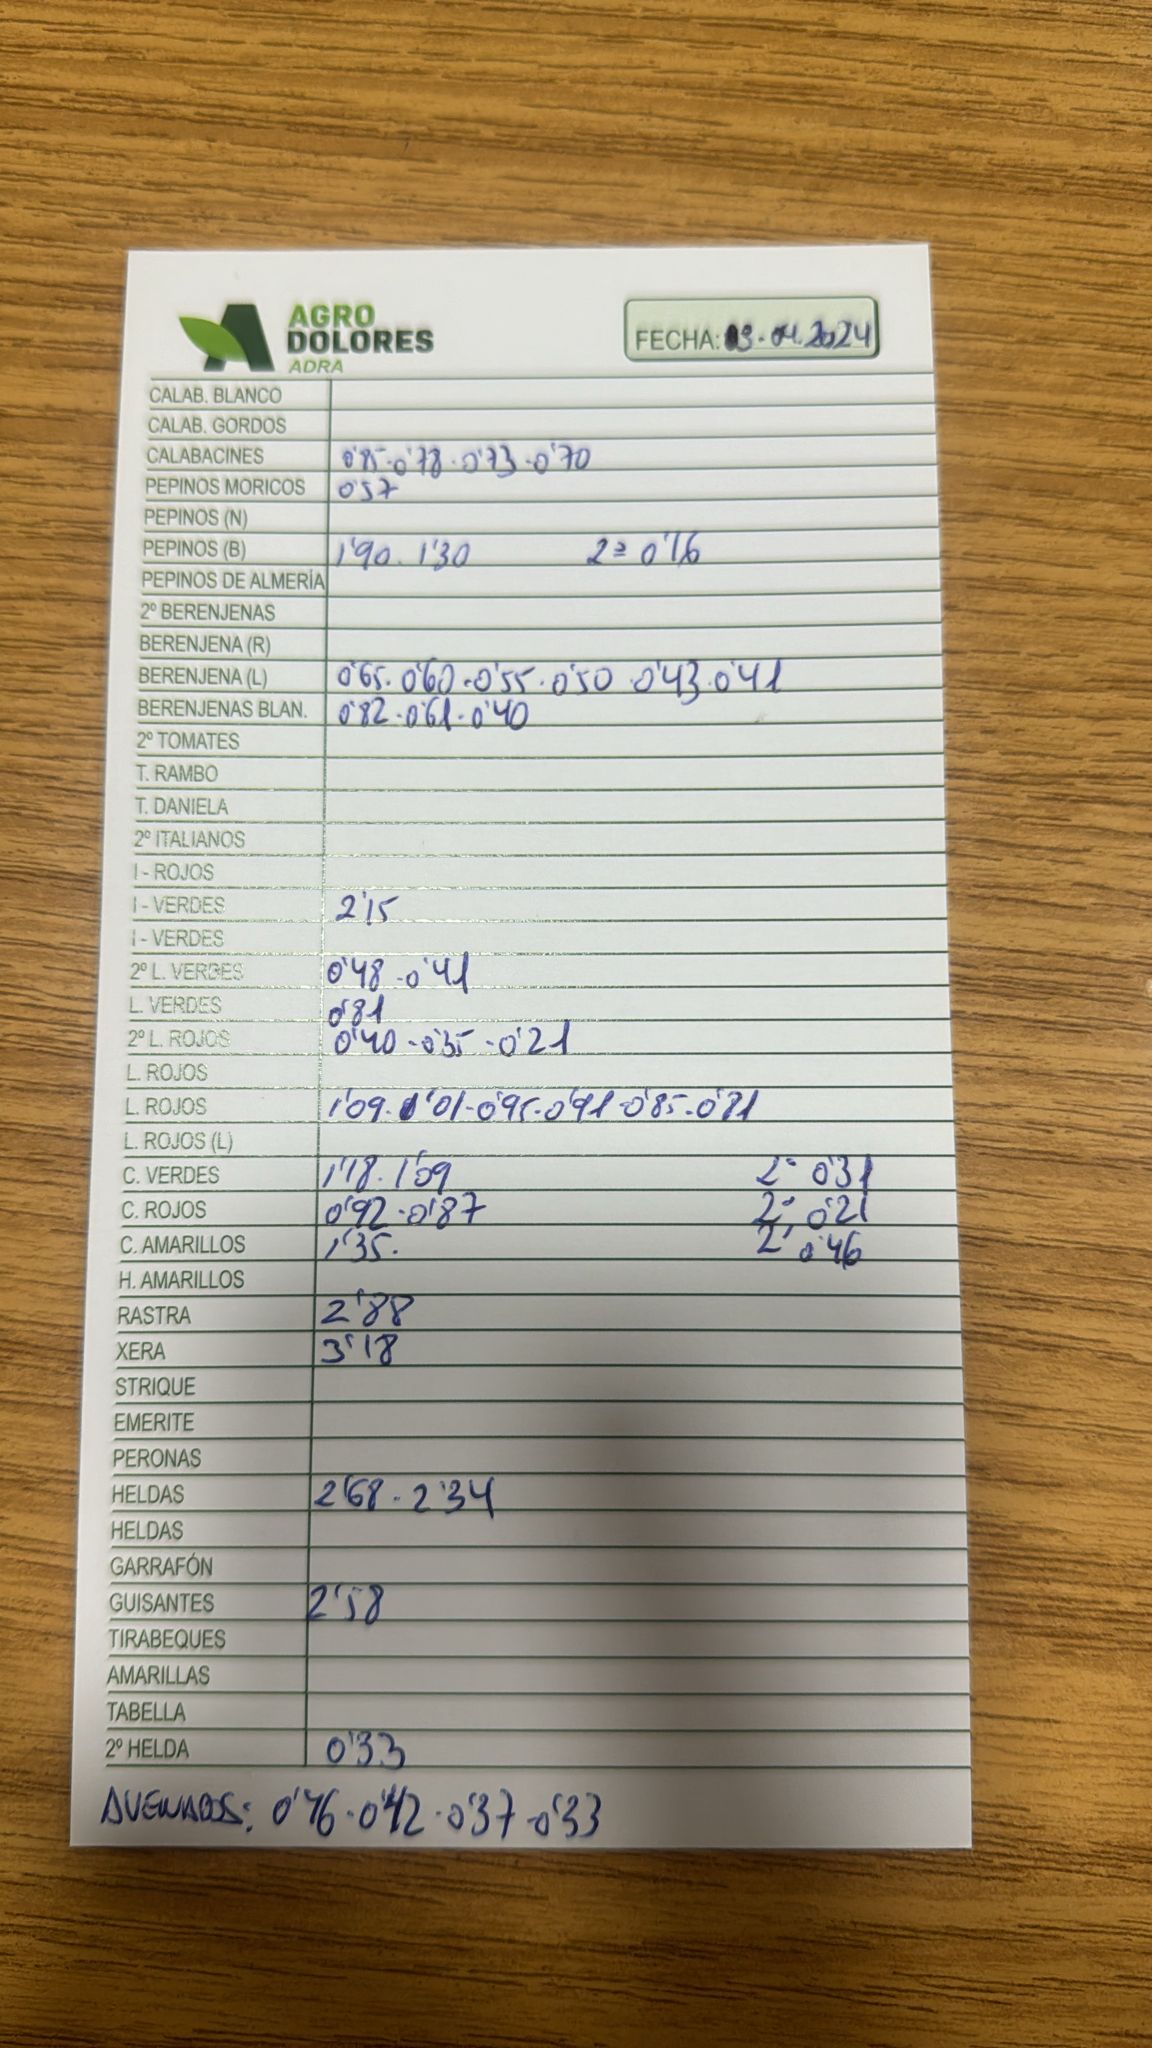 AGRO
DOLORES
ADRA
FECHA: 03.04.2024
CALAB. BLANCO
CALAB. GORDOS
CALABACINES 0'85.0'78.0'73.0'70
PEPINOS MORICOS 0'57
PEPINOS (N)
PEPINOS (B) 1'90.1'30 2ª 0'16
PEPINOS DE ALMERÍA
2º BERENJENAS
BERENJENA (R)
BERENJENA (L) 0'65.0'60.0'55.0'50.0'43.0'41
BERENJENAS BLAN. 0'82.0'61.0'40
2º TOMATES
T. RAMBO
T. DANIELA
2º ITALIANOS
I - ROJOS
I - VERDES 2'15
I - VERDES
2º L. VERDES 0'48.0'41
L. VERDES 0'81
2º L. ROJOS 0'40-0'35-0'21
L. ROJOS
L. ROJOS 1'09.1'01-0'95-0'91-0'85-0'81
L. ROJOS (L)
C. VERDES 1'18.1'09 2ª 0'31
C. ROJOS 0'92.0'87 2ª 0'21
C. AMARILLOS 1'35. 2ª 0'46
H. AMARILLOS
RASTRA 2'88
XERA 3'18
STRIQUE
EMERITE
PERONAS
HELDAS 2'68.2'34
HELDAS
GARRAFÓN
GUISANTES 2'58
TIRABEQUES
AMARILLAS
TABELLA
2º HELDA 0'33
AVENADOS: 0'46.0'42.0'37.0'33